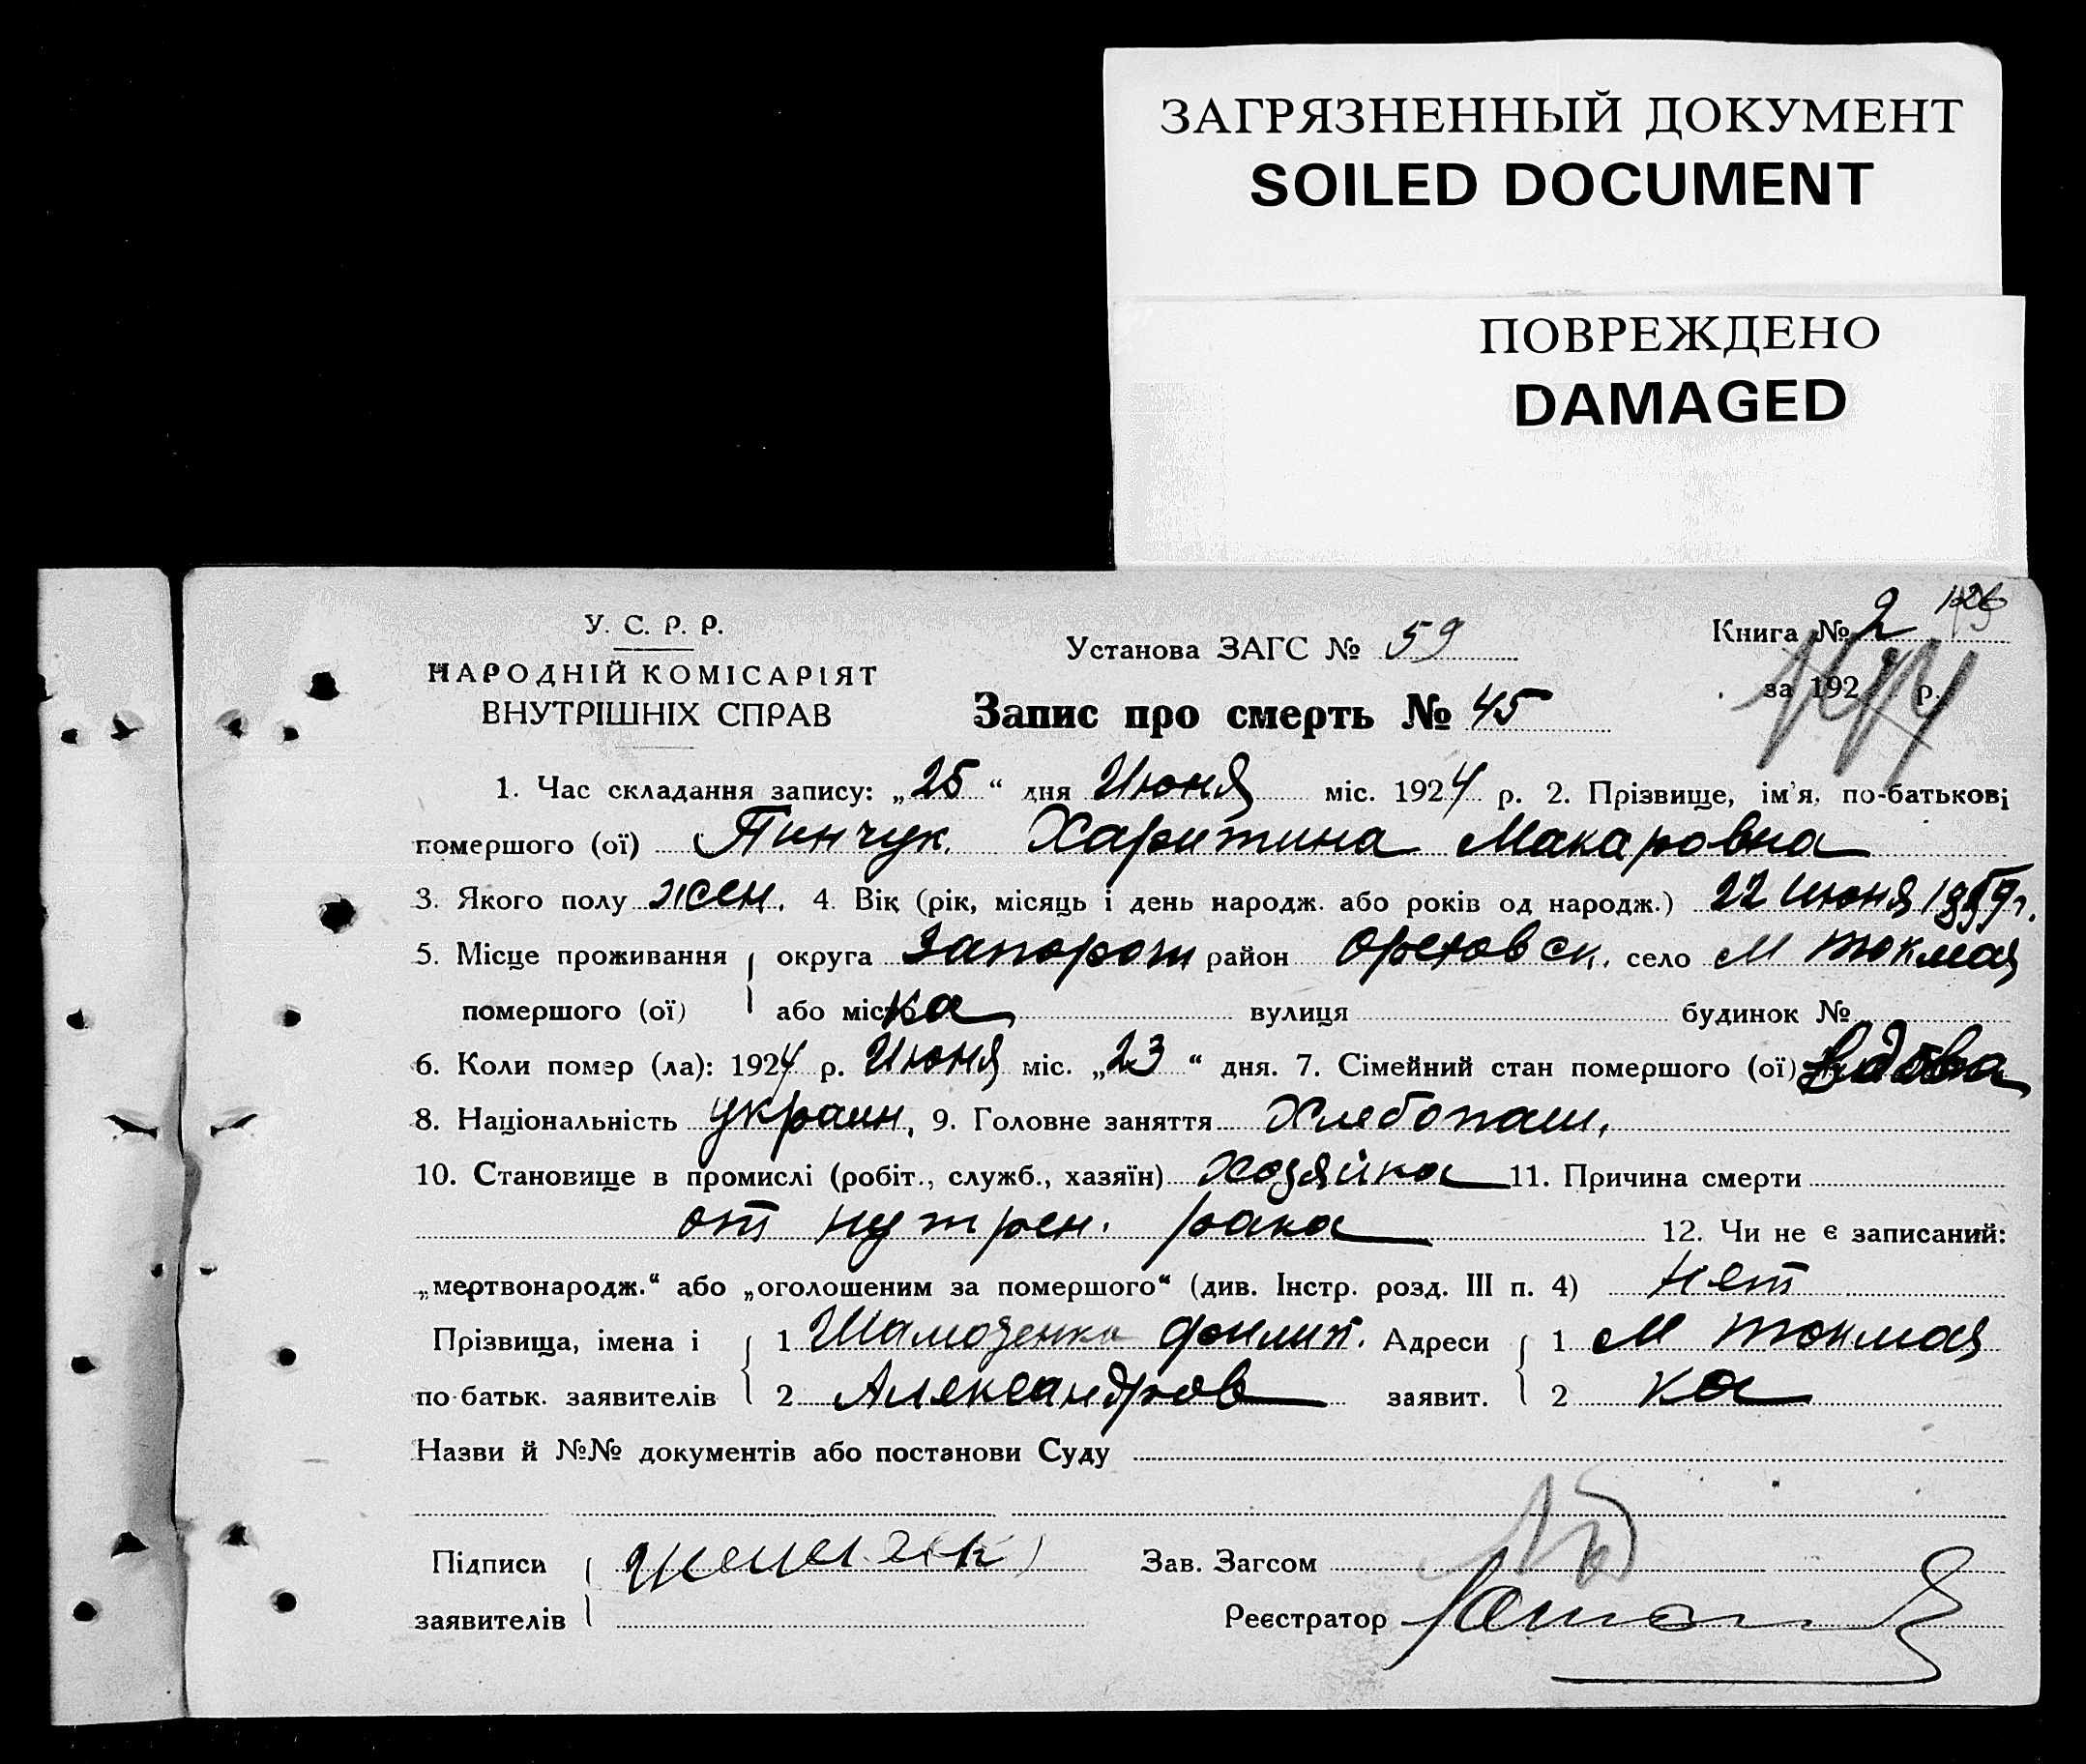 ЗАГРЯЗНЕННЫЙ ДОКУМЕНТ
SOILED DOCUMENT
ПОВРЕЖДЕНО
DAMAGED
У. С. Р. Р.
НАРОДНІЙ КОМІСАРІЯТ
ВНУТРІШНІХ СПРАВ
Установа ЗАГС № 59
Запис про смерть № 45
Книга № 2
за 192 р.
1. Час складання запису: „25“ дня Июня міс. 1924 р. 2. Прізвище, ім'я, по-батькові
помершого (ої) Пинчук Харитина Макаровна
3. Якого полу жен. 4. Вік (рік, місяць і день народж. або років од народж.) 22 июня
5. Місце проживання округа Запорож район Ореховск. село М Токмач
помершого (ої) або місто ка вулиця будинок №
6. Коли помер (ла): 1924 р. Июня міс. „23“ дня. 7. Сімейний стан помершого (ої) Вдова
8. Національність украин. 9. Головне заняття Хлебопаш.
10. Становище в промислі (робіт., служб., хазяїн) Хозяйка 11. Причина смерти
от нутрен. рака 12. Чи не є записаний:
„мертвонародж.“ або „оголошеним за помершого“ (див. Інстр. розд. III п. 4) нет
Прізвища, імена і 1 Филип. Адреси 1 М Токмач
по-батьк. заявителів 2 Александров заявит. 2 ка
Назви й №№ документів або постанови Суду
Підписи Зав. Загсом
заявителів Реєстратор